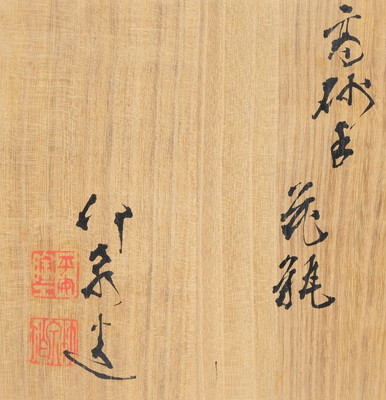 高砂手
花瓶
竹泉造